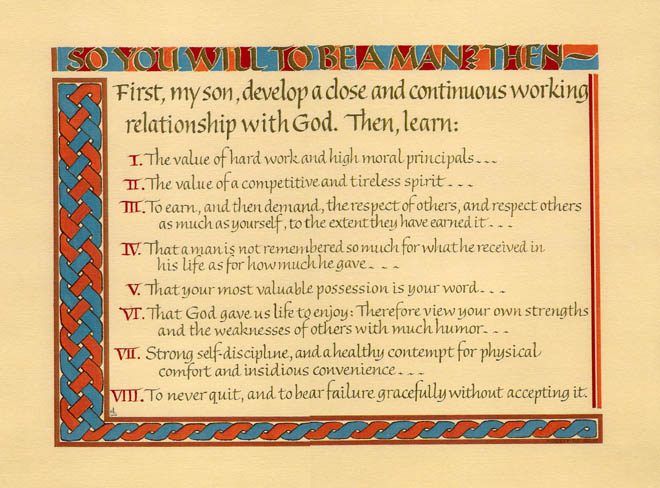 SO YOU WILL TO BE A MAN & THEN~
First, my son, develop a close and continuous working
relationship with God. Then, learn:
I. The value of hard work and high moral principals...
II. The value of a competitive and tireless spirit...
III. To earn, and then demand, the respect of others, and respect others
as much as yourself, to the extent they have earned it...
IV. That a man is not remembered so much for what he received in
his life as for how much he gave...
V. That your most valuable possession is your word...
VI. That God gave us life to enjoy: Therefore view your own strengths
and the weaknesses of others with much humor...
VII. Strong self-discipline, and a healthy contempt for physical
comfort and insidious convenience...
VIII. To never quit, and to bear failure gracefully without accepting it.